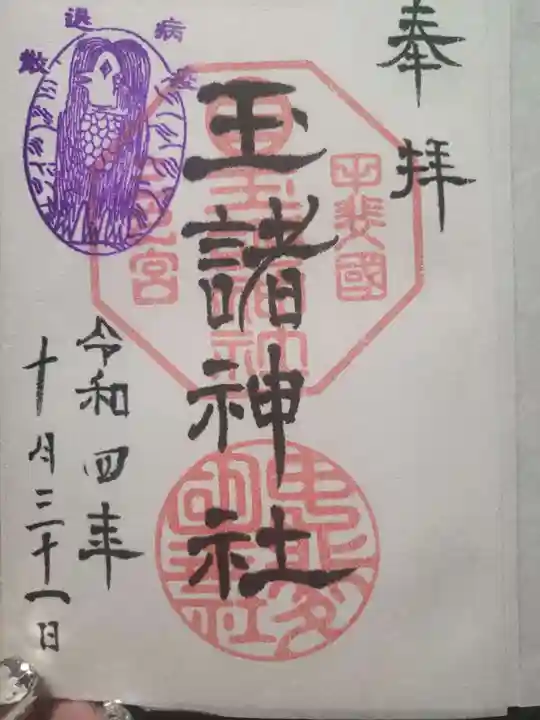 奉拝
玉諸神社
甲斐國
令和四年
十月三十一日